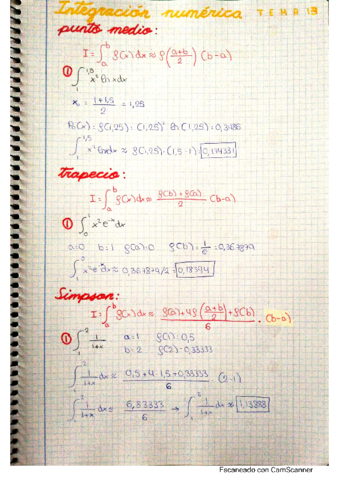 Integración numérica TEMA 13
punto medio:
I = ∫_a^b f(x) dx ≈ f((a+b)/2) (b-a)
① ∫_1^{1,5} x² ln x dx
x₀ = (1+1,5)/2 = 1,25
P₀(x) = f(1,25) = (1,25)² ln(1,25) = 0,3486
∫_1^{1,5} x² ln x dx ≈ f(1,25) · (1,5-1) =
trapecio:
I = ∫_a^b f(x) dx ≈ (f(b)+f(a))/2 (b-a)
① ∫_0^1 x² e^{-x} dx
a=0 b=1 f(a)=0 f(b) = 1/e = 0,367879
x² e^{-x} dx ≈ 0,367879/2 = 0,18394
Simpson:
I = ∫_a^b f(x) dx ≈ (f(a)+4f((a+b)/2)+f(b))/6 · (b-a)
① ∫_1^2 1/(1+x) a=1 f(1)=0,5
b=2 f(2)=0,33333
∫_1^2 1/(1+x) dx ≈ (0,5+4·1,5+0,33333)/6 · (2-1)
∫_1^2 1/(1+x) dx ≈ 6,83333/6 → ∫_1^2 1/(1+x) dx ≈
Escaneado con CamScanner